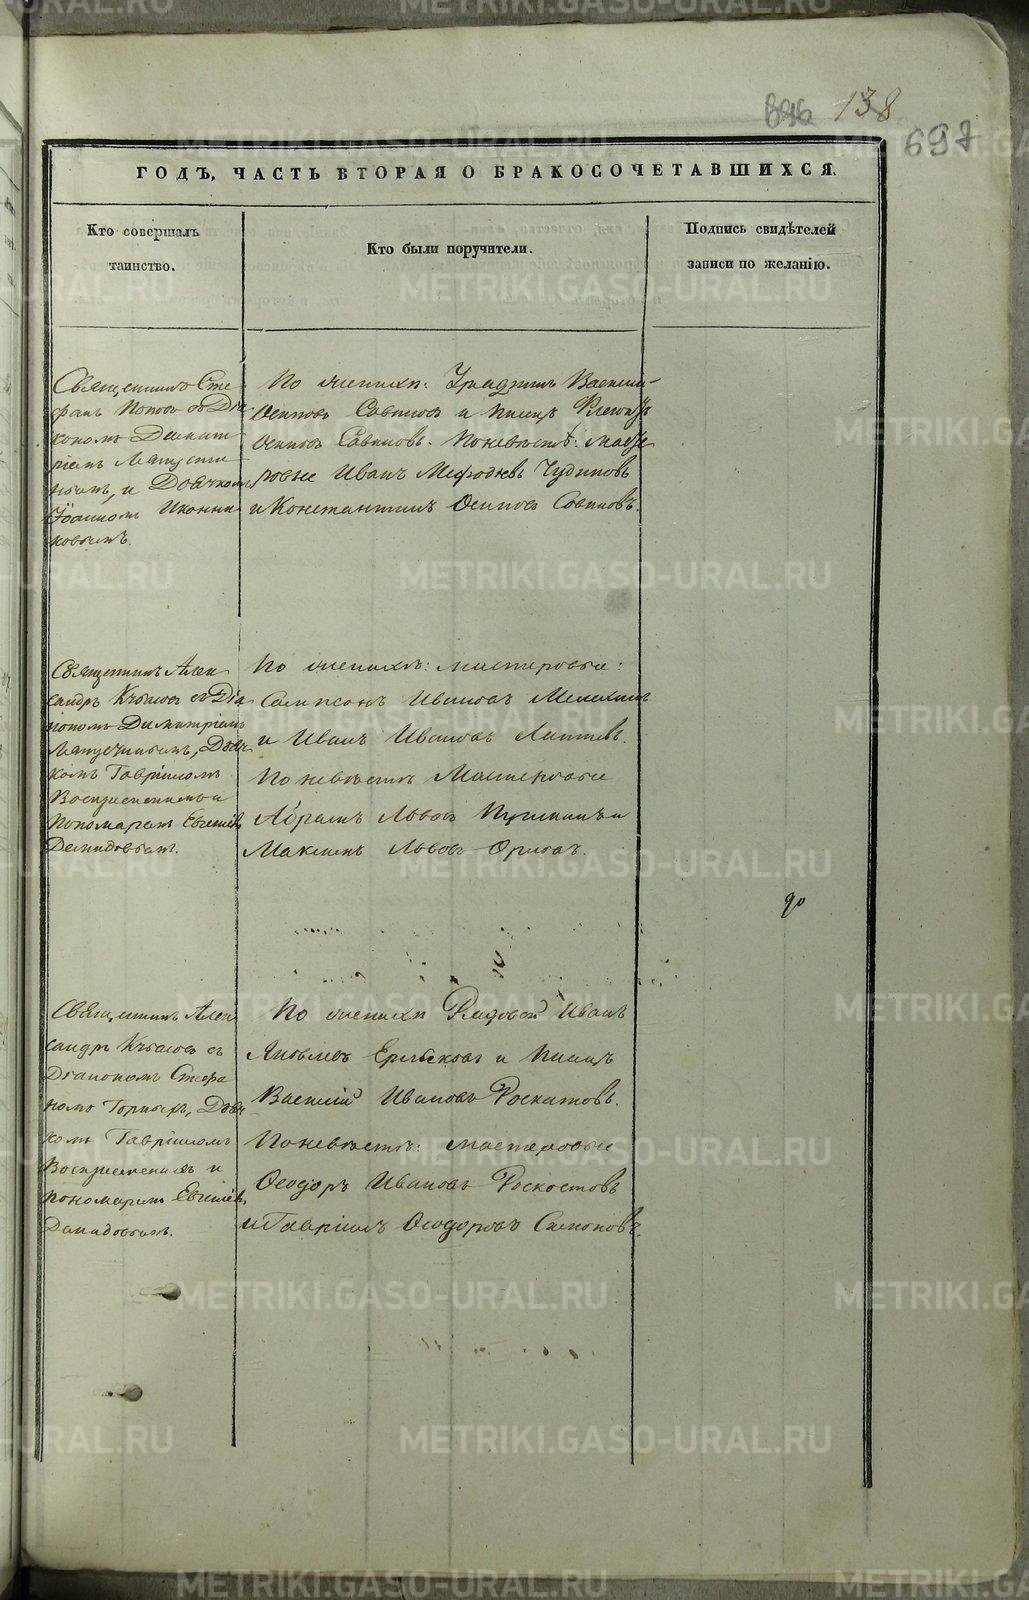 138
697
ГОДЪ, ЧАСТЬ ВТОРАЯ О БРАКОСОЧЕТАВШИХСЯ.
Кто совершалъ
таинство.
Кто были поручители.
Подпись свидѣтелей
записи по желанію.
Священникъ Сте
фанъ Поповъ съ Діа
кономъ Димит
ріемъ
и Дьячкомъ
Іоанномъ Иконни
ковымъ
По женихѣ: Урядникъ Василій
Осиповъ Савиновъ и Писецъ
Осиповъ Савиновъ. По невѣстѣ: масте
ровые Иванъ Мефодіевъ Чудиновъ
и Константинъ Осиповъ Савиновъ.
Священникъ Алек
сандръ съ Діа
кономъ Димитріемъ
Дьяч
комъ Гавріиломъ
Воскресенскимъ и
Пономаремъ Евгеніемъ
Демидовымъ.
По женихѣ: мастеровые:
Сампсонъ Ивановъ
и Иванъ Ивановъ Лаптевъ.
По невѣстѣ Мастеровые
Абрамъ Львовъ и
Максимъ Львовъ
до
Священникъ Алек
сандръ съ
Діакономъ Стефа
номъ Дьяч
комъ Гавріиломъ
Воскресенскимъ и
пономаремъ Евгеніемъ
Демидовымъ.
По женихѣ Рядовой Иванъ
Яковлевъ и Писецъ
Василій Ивановъ Роскатовъ.
По невѣстѣ: мастеровые
Ѳеодоръ Ивановъ
и Гавріилъ Ѳеодоровъ
METRIKI.GASO-URAL.RU